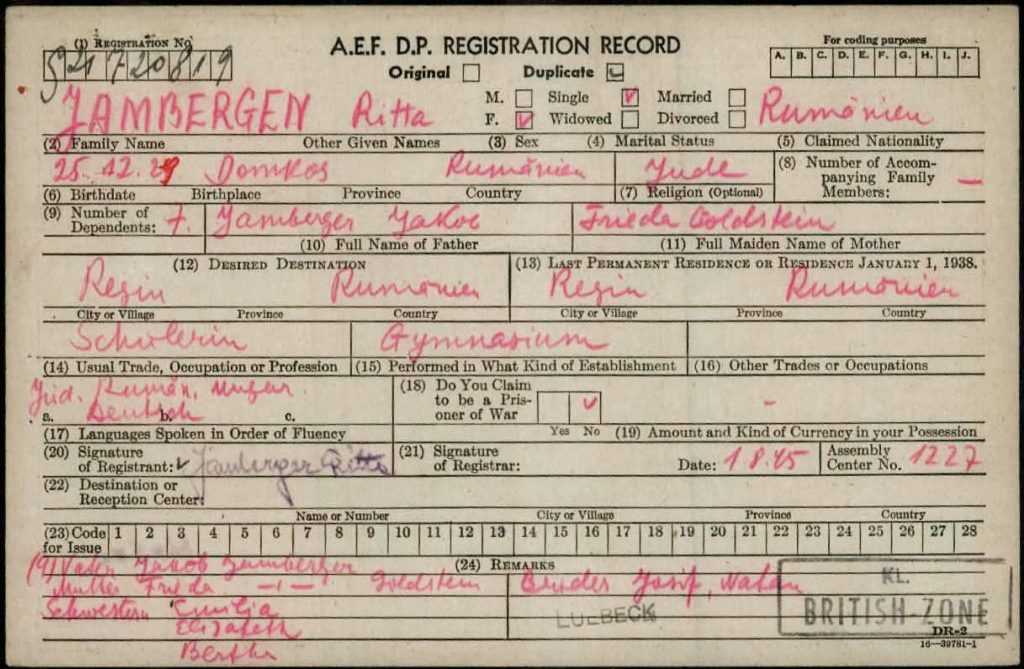 (1) REGISTRATION No.
A.E.F. D.P. REGISTRATION RECORD
For coding purposes
Original Duplicate
A. B. C. D. E. F. G. H. I. J.
M. Single Married
JAMBERGEN Ritta Rumänien
F. Widowed Divorced
(2) Family Name Other Given Names (3) Sex (4) Marital Status (5) Claimed Nationality
25. 12. 29 Domkos Rumänien Jude
(8) Number of Accompanying Family Members: —
(6) Birthdate Birthplace Province Country (7) Religion (Optional)
(9) Number of Dependents: 7. Jamberger Jakob Frieda Goldstein
(10) Full Name of Father (11) Full Maiden Name of Mother
(12) DESIRED DESTINATION (13) LAST PERMANENT RESIDENCE OR RESIDENCE JANUARY 1, 1938.
Regin Rumänien Regin Rumänien
City or Village Province Country City or Village Province Country
Schülerin Gymnasium
(14) Usual Trade, Occupation or Profession (15) Performed in What Kind of Establishment (16) Other Trades or Occupations
Jüd. Rumän, ungar.
Deutsch
a. b. c.
(18) Do You Claim to be a Prisoner of War
Yes No
-
(17) Languages Spoken in Order of Fluency (19) Amount and Kind of Currency in your Possession
(20) Signature of Registrant: Jamberger Ritta
(21) Signature of Registrar:
Date: 1.8.45 Assembly Center No. 1227
(22) Destination or Reception Center:
Name or Number City or Village Province Country
(23) Code for Issue 1 2 3 4 5 6 7 8 9 10 11 12 13 14 15 16 17 18 19 20 21 22 23 24 25 26 27 28
(24) REMARKS
(9) Vater Jakob Jamberger
Mutter Frieda —"— Goldstein Bruder Josif, Natan
Schwestern Emilia
Elizabeth
Bertha
LUEBECK
KL.
BRITISH-ZONE
DR-2
16—39781-1